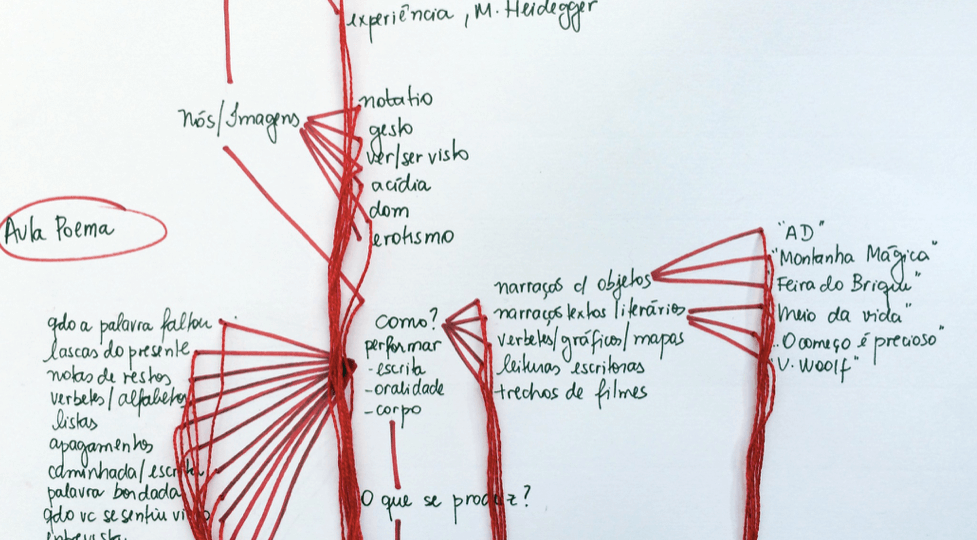 experiência, M. Heidegger
nós/Imagens
notatio
gesto
ver/ser visto
acídia
dom
erotismo
Aula Poema
qdo a palavra faltou
lascas do presente
notas de restos
verbetes/alfabetos
listas
apagamentos
caminhada/escrita
palavra bordada
qdo vc se sentiu
como?
performar
-escrita
-oralidade
-corpo
O que se produz?
narraços d objetos
narraços textos literários
verbetes/gráficos/mapas
leituras escritoras
trechos de filmes
"AD"
"Montanha Mágica"
Feira do
"meio da vida"
"O começo é precioso"
"V. Woolf"